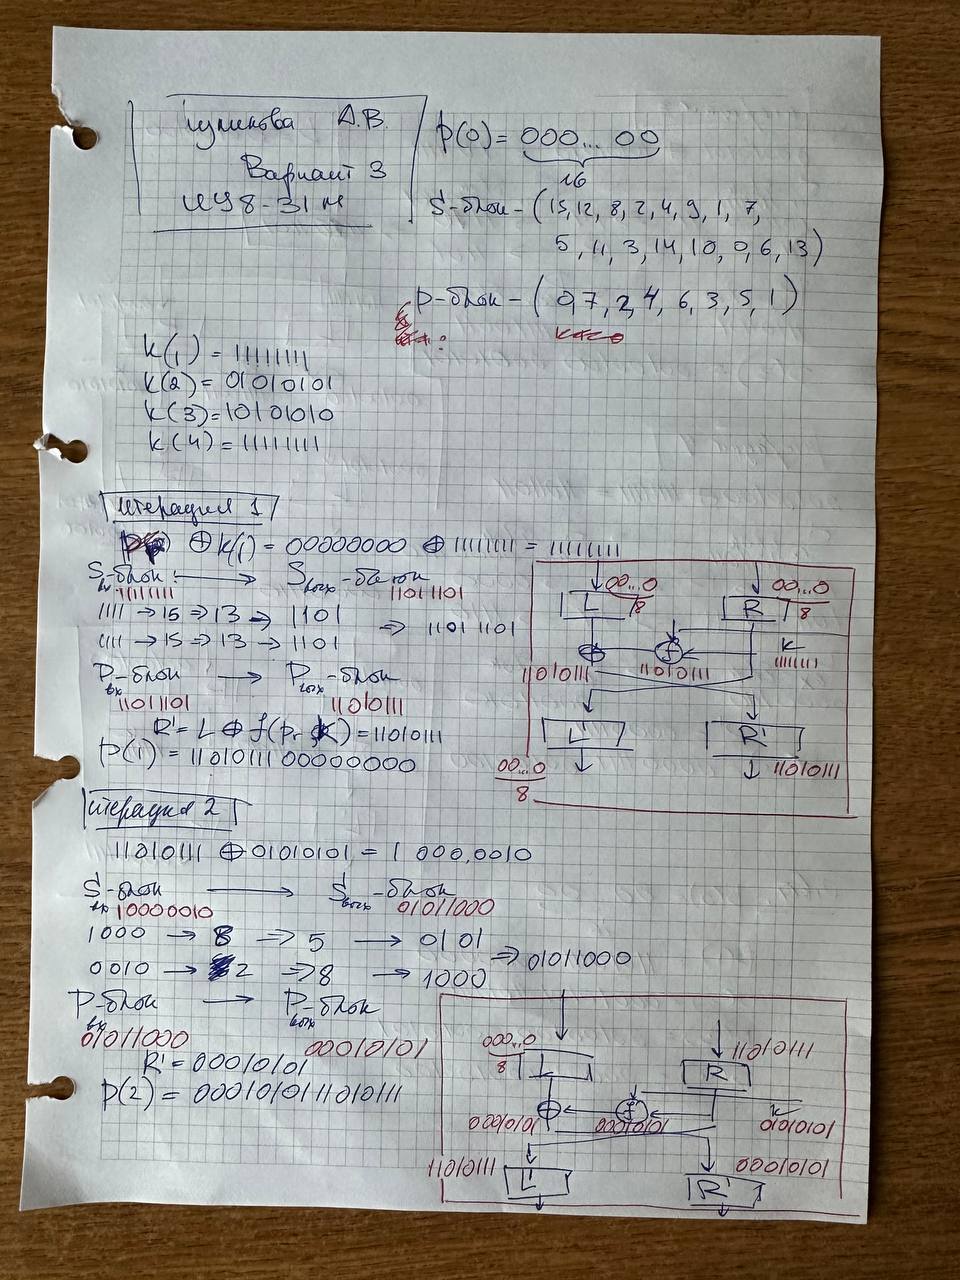 А.В.
Вариант 3
ИУ8-31М
p(0) = 000...00
16
S-блок - (15, 12, 8, 2, 4, 9, 1, 7,
5, 11, 3, 14, 10, 0, 6, 13)
P-блок - ( 0, 7, 2, 4, 6, 3, 5, 1 )
K(1) = 11111111
K(2) = 01010101
K(3) = 10101010
K(4) = 11111111
Итерация 1
⊕ K(1) = 00000000 ⊕ 11111111 = 11111111
Sвх-блок : → Sвых-блок
11111111 11011101
1111 → 15 ⇒ 13 → 1101
1111 → 15 ⇒ 13 → 1101 ⇒ 1101 1101
Pвх-блок → Pвых-блок
11011101 11010111
R' = L ⊕ f(pr, K) = 11010111
p(1) = 1101011100000000
00...0
8
00...0
8
L
R
K
11111111
f
11010111
11010111
L'
R'
00...0
8
11010111
Итерация 2
11010111 ⊕ 01010101 = 1000,0010
Sвх-блок → Sвых-блок
10000010 01011000
1000 → 8 ⇒ 5 → 0101
0010 → 2 ⇒ 8 → 1000 ⇒ 01011000
Pвх-блок → Pвых-блок
01011000 00010101
R' = 00010101
p(2) = 0001010111010111
000..0
8
L
11010111
R
K
01010101
f
00010101
00010101
11010111
L'
R'
00010101